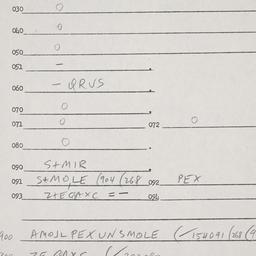 030 0
040 0
050 0
051 -
060 - QRUS
070 0
071 0 072 0
080 0
090 S+MIR
091 S+MOLE (904 (268 092 PEX
093 Z+EGAXC = - 094
900 AMOJL PEX UN SMOLE (/154041 (268 (9